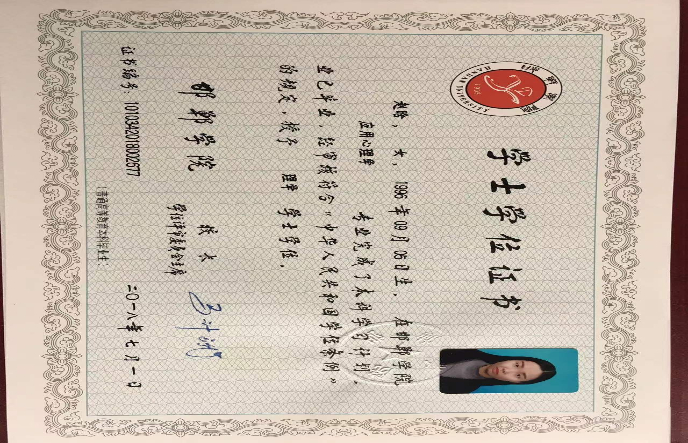 学士学位证书
赵璐，女，1996年09月05日生，在邯郸学院
应用心理学 专业完成了本科学习计划，
业已毕业，经审核符合《中华人民共和国学位条例》
的规定，授予 理学 学士学位。
邯郸学院
校长
学位评定委员会主席
证书编号 1010342018002677
二〇一八年七月一日
（普通高等教育本科毕业生）